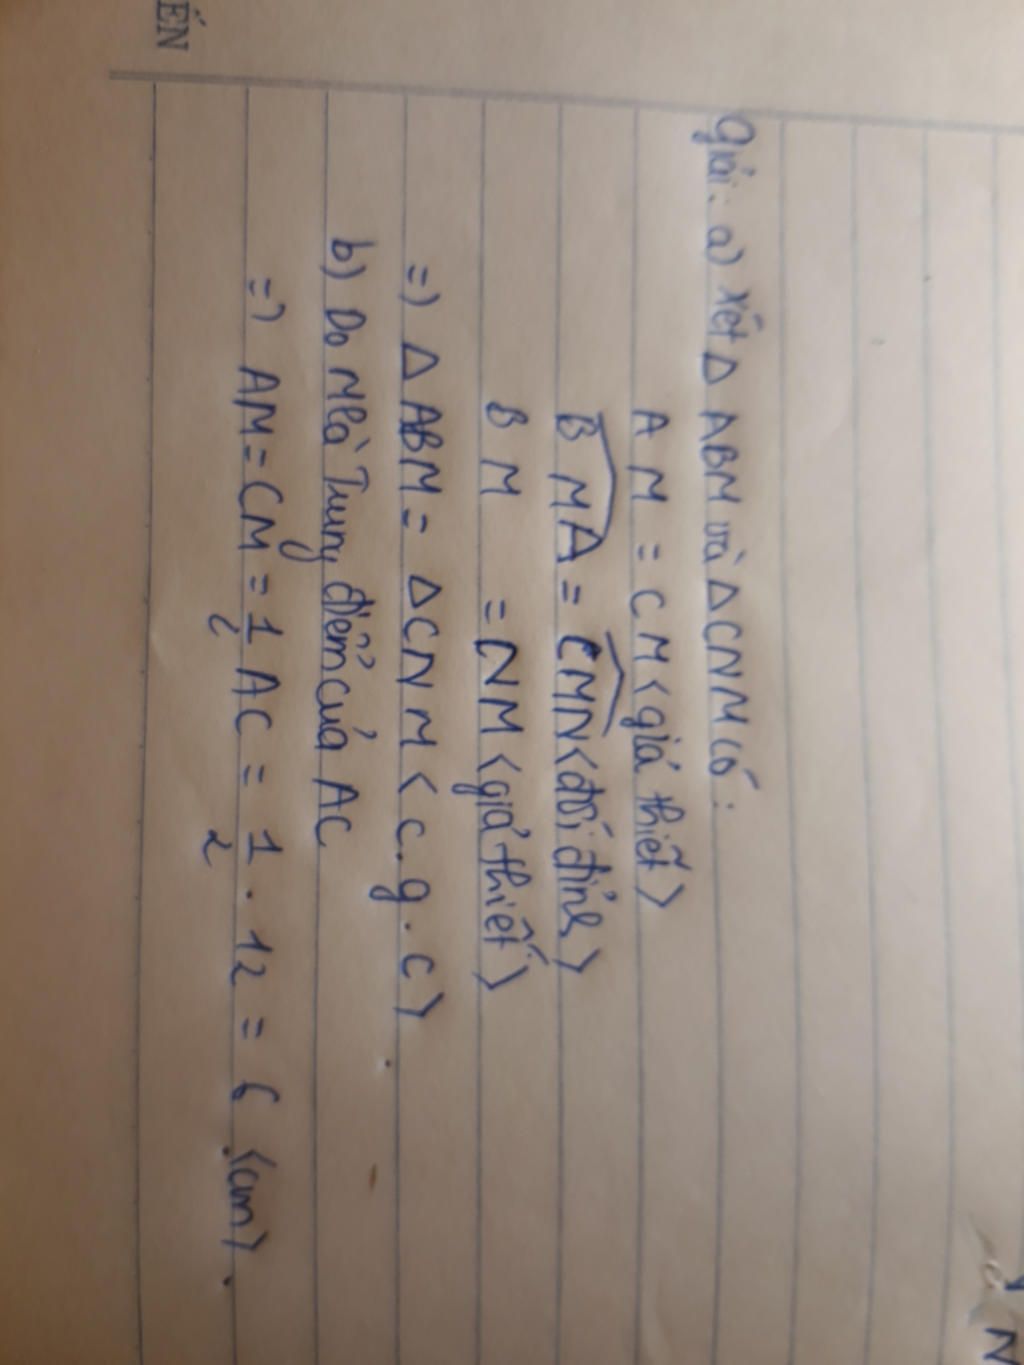 Giải: a) Xét Δ ABM và Δ CNM có:
A M = C M <giả thiết>
B M A = C M N <đối đỉnh>
B M = N M <giả thiết>
=) Δ ABM = Δ CNM < c.g.c)
b) Do M là Trung điểm của AC
=) AM = CM = 1/2 AC = 1/2 . 12 = 6 <cm> .
ẾN
N